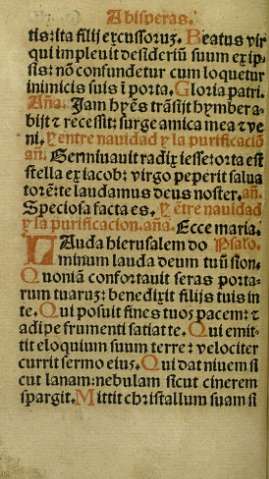 A bisperas.
tis: ita filij excussoruʒ. Beatus vir
qui impleuit desideriũ suum ex ip-
sis: nõ confundetur cum loquetur
inimicis suis ĩ porta. Gloria patri.
Aña. Jam hyẽs trãsijt ⁊ hymber a-
bijt ⁊ recessit: surge amica mea ⁊ ve
ni. ¶ entre nauidad y la purificaciõ
añ. Germinauit radix iesse: orta est
stella ex iacob: virgo peperit salua
torẽ: te laudamus deus noster. añ.
Speciosa facta es. ¶ ẽtre nauidad
y la purificacion. aña. Ecce maria.
LAuda hierusalem do Psalo.
minum lauda deum tuũ sion.
Quoniã confortauit seras porta-
rum tuaruʒ: benedixit filijs tuis in
te. Qui posuit fines tuos pacem: ⁊
adipe frumenti satiat te. Qui emit-
tit eloquium suum terre: velociter
currit sermo eius. Qui dat niuem si
cut lanam: nebulam sicut cinerem
spargit. Mittit christallum suam si